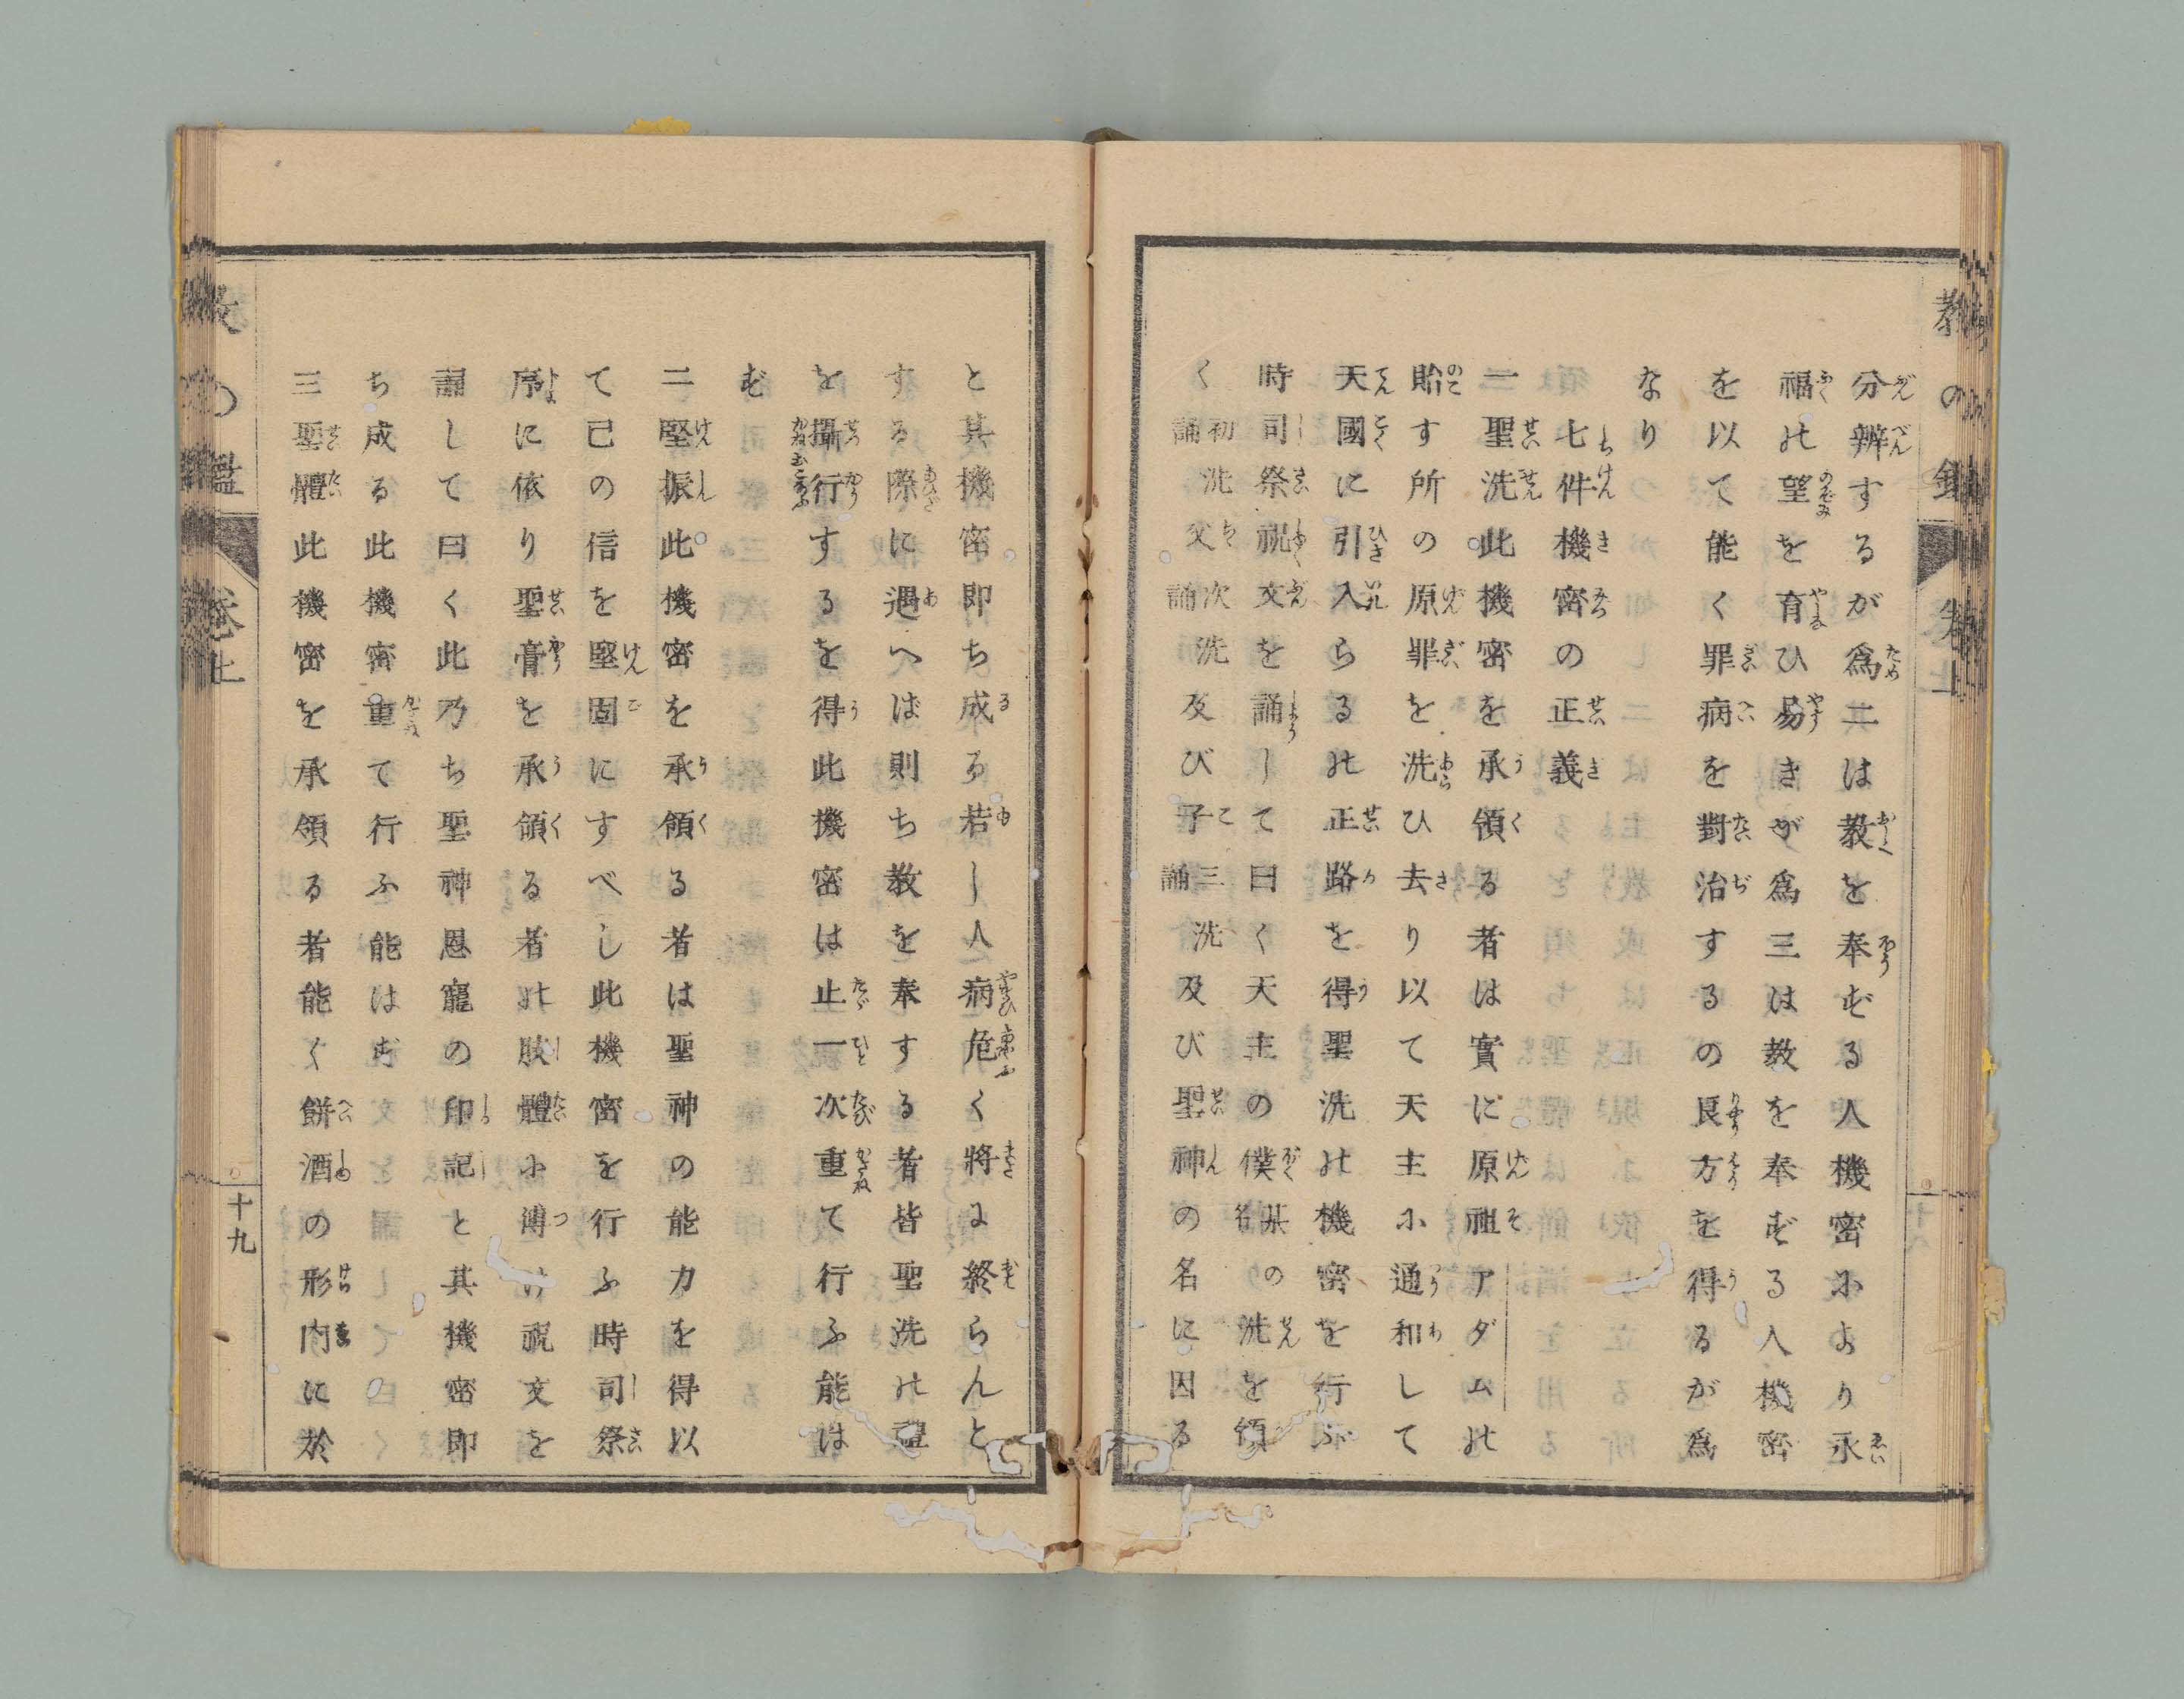 教の鑑 卷上
分辨するが爲二は教を奉ずる人機密により永
福の望を育ひ易きが爲三は教を奉ずる人機密
を以て能く罪病を對治するの良方を得るが爲
なり
七件機密の正義
一聖洗此機密を承領る者は實に原祖アダムの
貽す所の原罪を洗ひ去り以て天主に通和して
天國に引入らるの正路を得聖洗の機密を行ふ
時司祭祝文を誦して曰く天主の僕某の洗を領
く初誦洗父次誦洗及び子三誦洗及び聖神の名に因る
と其機密即ち成る若し人病危く將に終らんと
する際に遇へば則ち教を奉する者皆聖洗の禮
を攝行するを得此機密は止一次重て行ふ能は
ず
二堅振此機密を承領る者は聖神の能力を得以
て己の信を堅固にすべし此機密を行ふ時司祭
序に依り聖膏を承領る者の肢體に溥け祝文を
誦して曰く此乃ち聖神恩寵の印記と其機密即
ち成る此機密重て行ふ能はず
三聖體此機密を承領る者能く餅酒の形内に於
教の鑑 卷上 十九